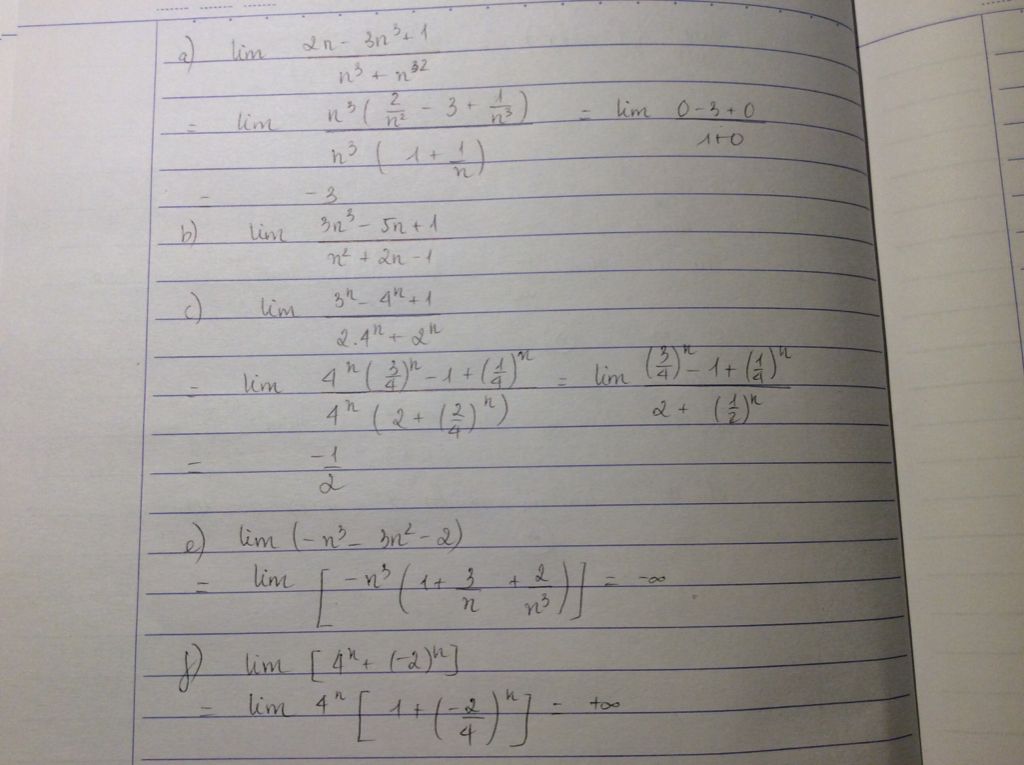 a) lim (2n - 3n³ + 1)/(n³ + n³²)
= lim (n³(2/n² - 3 + 1/n³))/(n³(1 + 1/n)) = lim (0 - 3 + 0)/(1+0)
= -3
b) lim (3n³ - 5n + 1)/(n² + 2n - 1)
c) lim (3ⁿ - 4ⁿ + 1)/(2.4ⁿ + 2ⁿ)
= lim (4ⁿ((3/4)ⁿ - 1 + (1/4)ⁿ)/(4ⁿ(2 + (2/4)ⁿ)) = lim ((3/4)ⁿ - 1 + (1/4)ⁿ)/(2 + (1/2)ⁿ)
= -1/2
e) lim (-n³ - 3n² - 2)
= lim [-n³(1 + 3/n + 2/n³)] = -∞
f) lim [4ⁿ + (-2)ⁿ]
= lim 4ⁿ[1 + (-2/4)ⁿ] = +∞